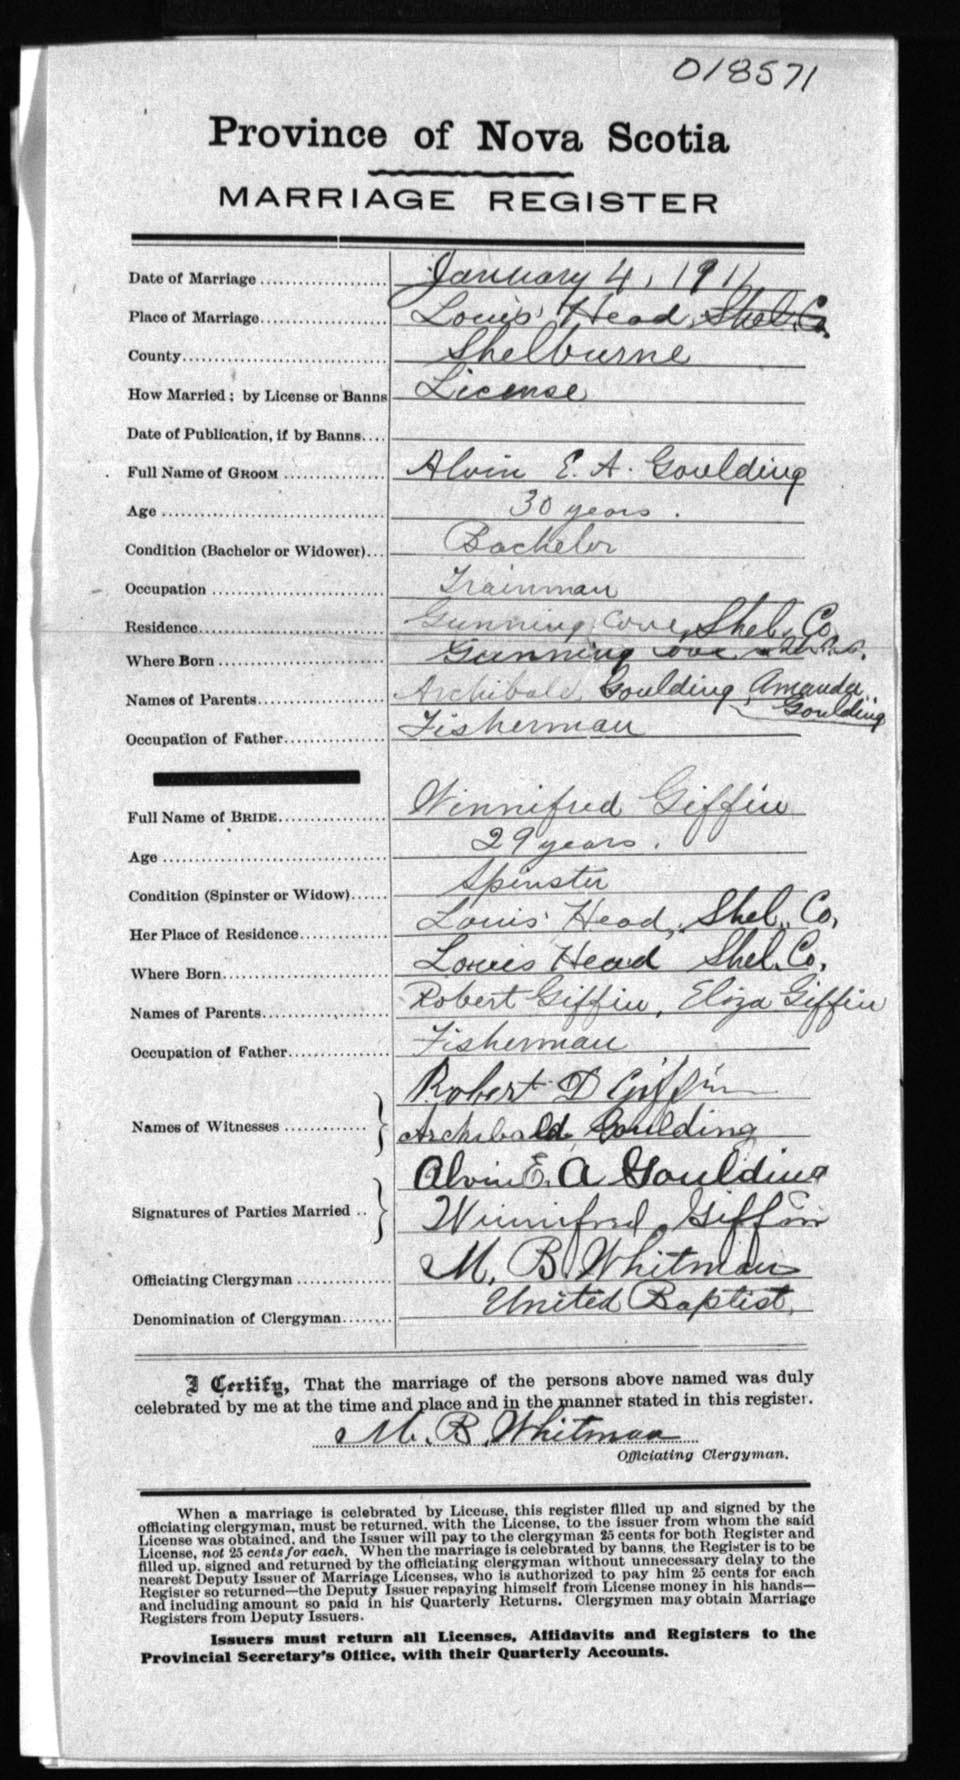 018571
Province of Nova Scotia
MARRIAGE REGISTER
Date of Marriage .................. January 4, 1911
Place of Marriage.................. Louis' Head, Shel. Co.
County.............................. Shelburne
How Married; by License or Banns License
Date of Publication, if by Banns....
Full Name of GROOM ............... Alvin E. A. Goulding
Age ................................. 30 years.
Condition (Bachelor or Widower)... Bachelor
Occupation ......................... Trainman
Residence........................... Gunning Cove, Shel. Co.
Where Born ......................... Gunning Cove
Names of Parents................... Archibald Goulding, Amanda Goulding
Occupation of Father............... Fisherman
Full Name of BRIDE................. Winnifred Giffin
Age ................................. 29 years.
Condition (Spinster or Widow)...... Spinster
Her Place of Residence............. Louis' Head, Shel. Co.
Where Born.......................... Louis Head Shel. Co.
Names of Parents................... Robert Giffin, Eliza Giffin
Occupation of Father............... Fisherman
Robert D Giffin
Names of Witnesses ............ } Archibald Goulding
Alvin E. A Goulding
Signatures of Parties Married .. } Winnifred Giffin
Officiating Clergyman .............. M. B. Whitman
Denomination of Clergyman........ United Baptist.
I Certify, That the marriage of the persons above named was duly
celebrated by me at the time and place and in the manner stated in this register.
M. B. Whitman
Officiating Clergyman.
When a marriage is celebrated by License, this register filled up and signed by the
officiating clergyman, must be returned, with the License, to the issuer from whom the said
License was obtained, and the Issuer will pay to the clergyman 25 cents for both Register and
License, not 25 cents for each. When the marriage is celebrated by banns, the Register is to be
filled up, signed and returned by the officiating clergyman without unnecessary delay to the
nearest Deputy Issuer of Marriage Licenses, who is authorized to pay him 25 cents for each
Register so returned—the Deputy Issuer repaying himself from License money in his hands—
and including amount so paid in his Quarterly Returns. Clergymen may obtain Marriage
Registers from Deputy Issuers.
Issuers must return all Licenses, Affidavits and Registers to the
Provincial Secretary's Office, with their Quarterly Accounts.